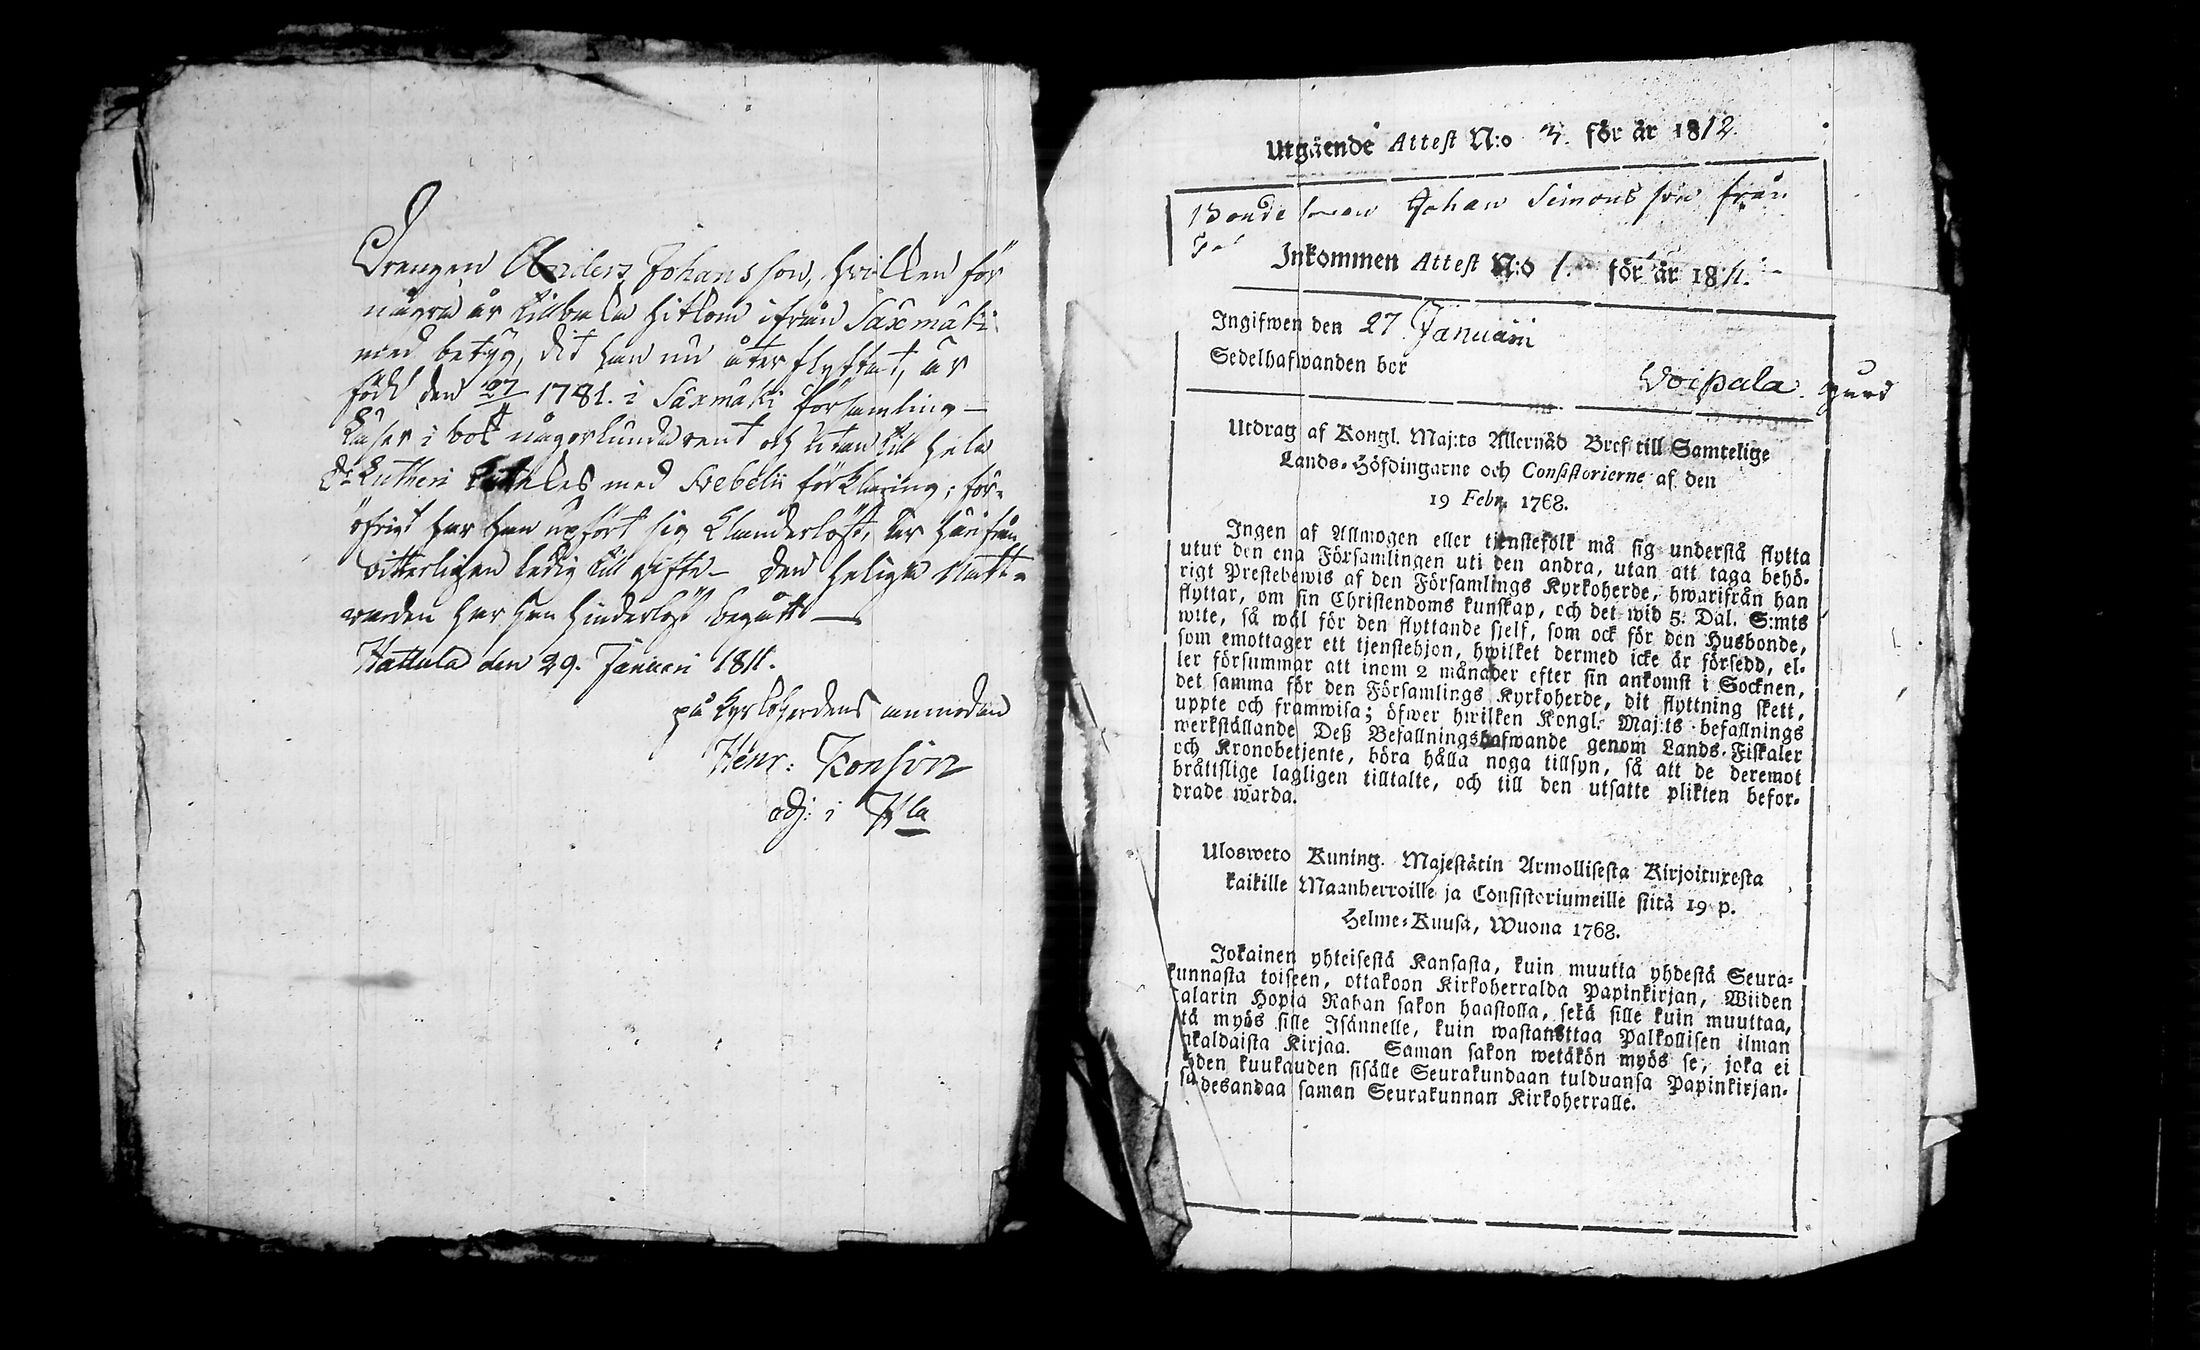 Drengen Anders Johansson, hvilken för
några år tillbaka hitkom ifrån Säxmäki
med betyg, dit han nu åter flyttat, är
född den 27 1781. i Säxmäki församling —
Läser i bok någorlunda rent och utan till hela
Dr Lutheri Cateches med Svebelii förklaring; för-
öfrigt har han upfört sig klanderlöst, är härifrån
vitterligen ledig till gifte — den heliga Natt-
varden har han hinderlöst begått —
Hattula den 29. Januari 1811.
på Kyrkoherdens anmodan
Henr: Konsin
adj: i Hla
Utgående Attest N:o 3. för år 1812
Bonde sonen Johan Simonsson från
Inkommen Attest N:o 1. för år 1811.
Ingifwen den 27 Januarii
Sedelhafwanden bor
Voipala gård
Utdrag af Kongl. Maj:ts Allernåd Bref till Samtelige
Lands-Höfdingarne och Consistorierne af den
19 Febr. 1768.
Ingen af Allmogen eller tjenstefolk må sig understå flytta
utur den ena Församlingen uti den andra, utan att taga behö-
rigt Prestebewis af den Församlings Kyrkoherde, hwarifrån han
flyttar, om sin Christendoms kunskap, och det wid 5. Dal. S:mts
wite, så wäl för den flyttande sjelf, som ock för den Husbonde,
som emottager ett tjenstehjon, hwilket dermed icke är försedd, el-
ler försummar att inom 2 månader efter sin ankomst i Socknen,
det samma för den Församlings Kyrkoherde, dit flyttning skett,
uppte och framwisa; öfwer hwilken Kongl. Maj:ts befallnings
werkställande Deß Befallningshafwande genom Lands-Fiskaler
och Kronobetjente, böra hålla noga tillsyn, så att de deremot
bråttslige lagligen tilltalte, och till den utsatte plikten befor-
drade warda.
Ulosweto Kuning. Majestätin Armollisesta Kirjoituxesta
kaikille Maanherroille ja Consistoriumeille siitä 19 p.
Helme-Kuusa, Wuona 1768.
Jokainen yhteisestä Kansasta, kuin muutta yhdestä Seura-
kunnasta toiseen, ottakoon Kirkoherralda Papinkirjan, Wiiden
alarin Hopia Rahan sakon haastolla, sekä sille kuin muuttaa,
tä myös sille Isännelle, kuin wastanottaa Palkollisen ilman
nkaldaista Kirjaa. Saman sakon wetäkön myös se, joka ei
hden kuukauden sisälle Seurakundaan tulduansa Papinkirjan-
sa desandaa saman Seurakunnan Kirkoherralle.